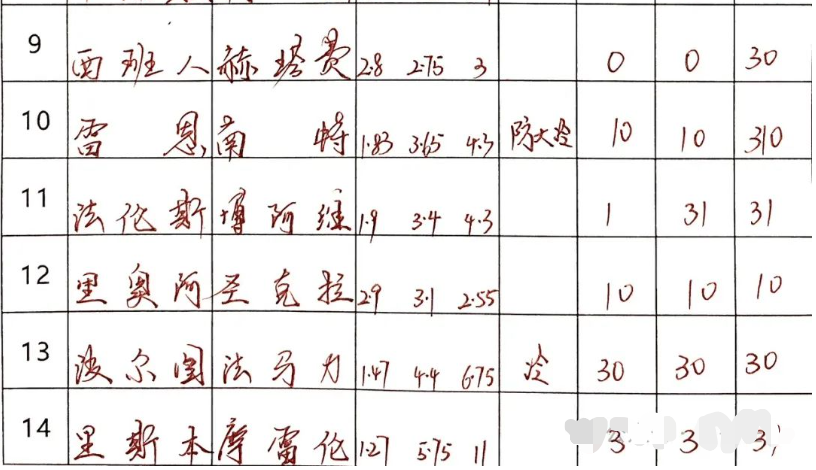 9 西班人 赫塔费 2.8 2.75 3 0 0 30
10 雷恩 南特 1.83 3.65 4.3 防大冷 10 10 310
11 法伦斯 博阿维 1.9 3.4 4.3 1 31 31
12 里奥阿 圣克拉 2.9 3.1 2.55 10 10 10
13 波尔图 法马力 1.47 4.4 6.75 冷 30 30 30
14 里斯本 摩雷伦 1.27 5.75 11 3 3 3